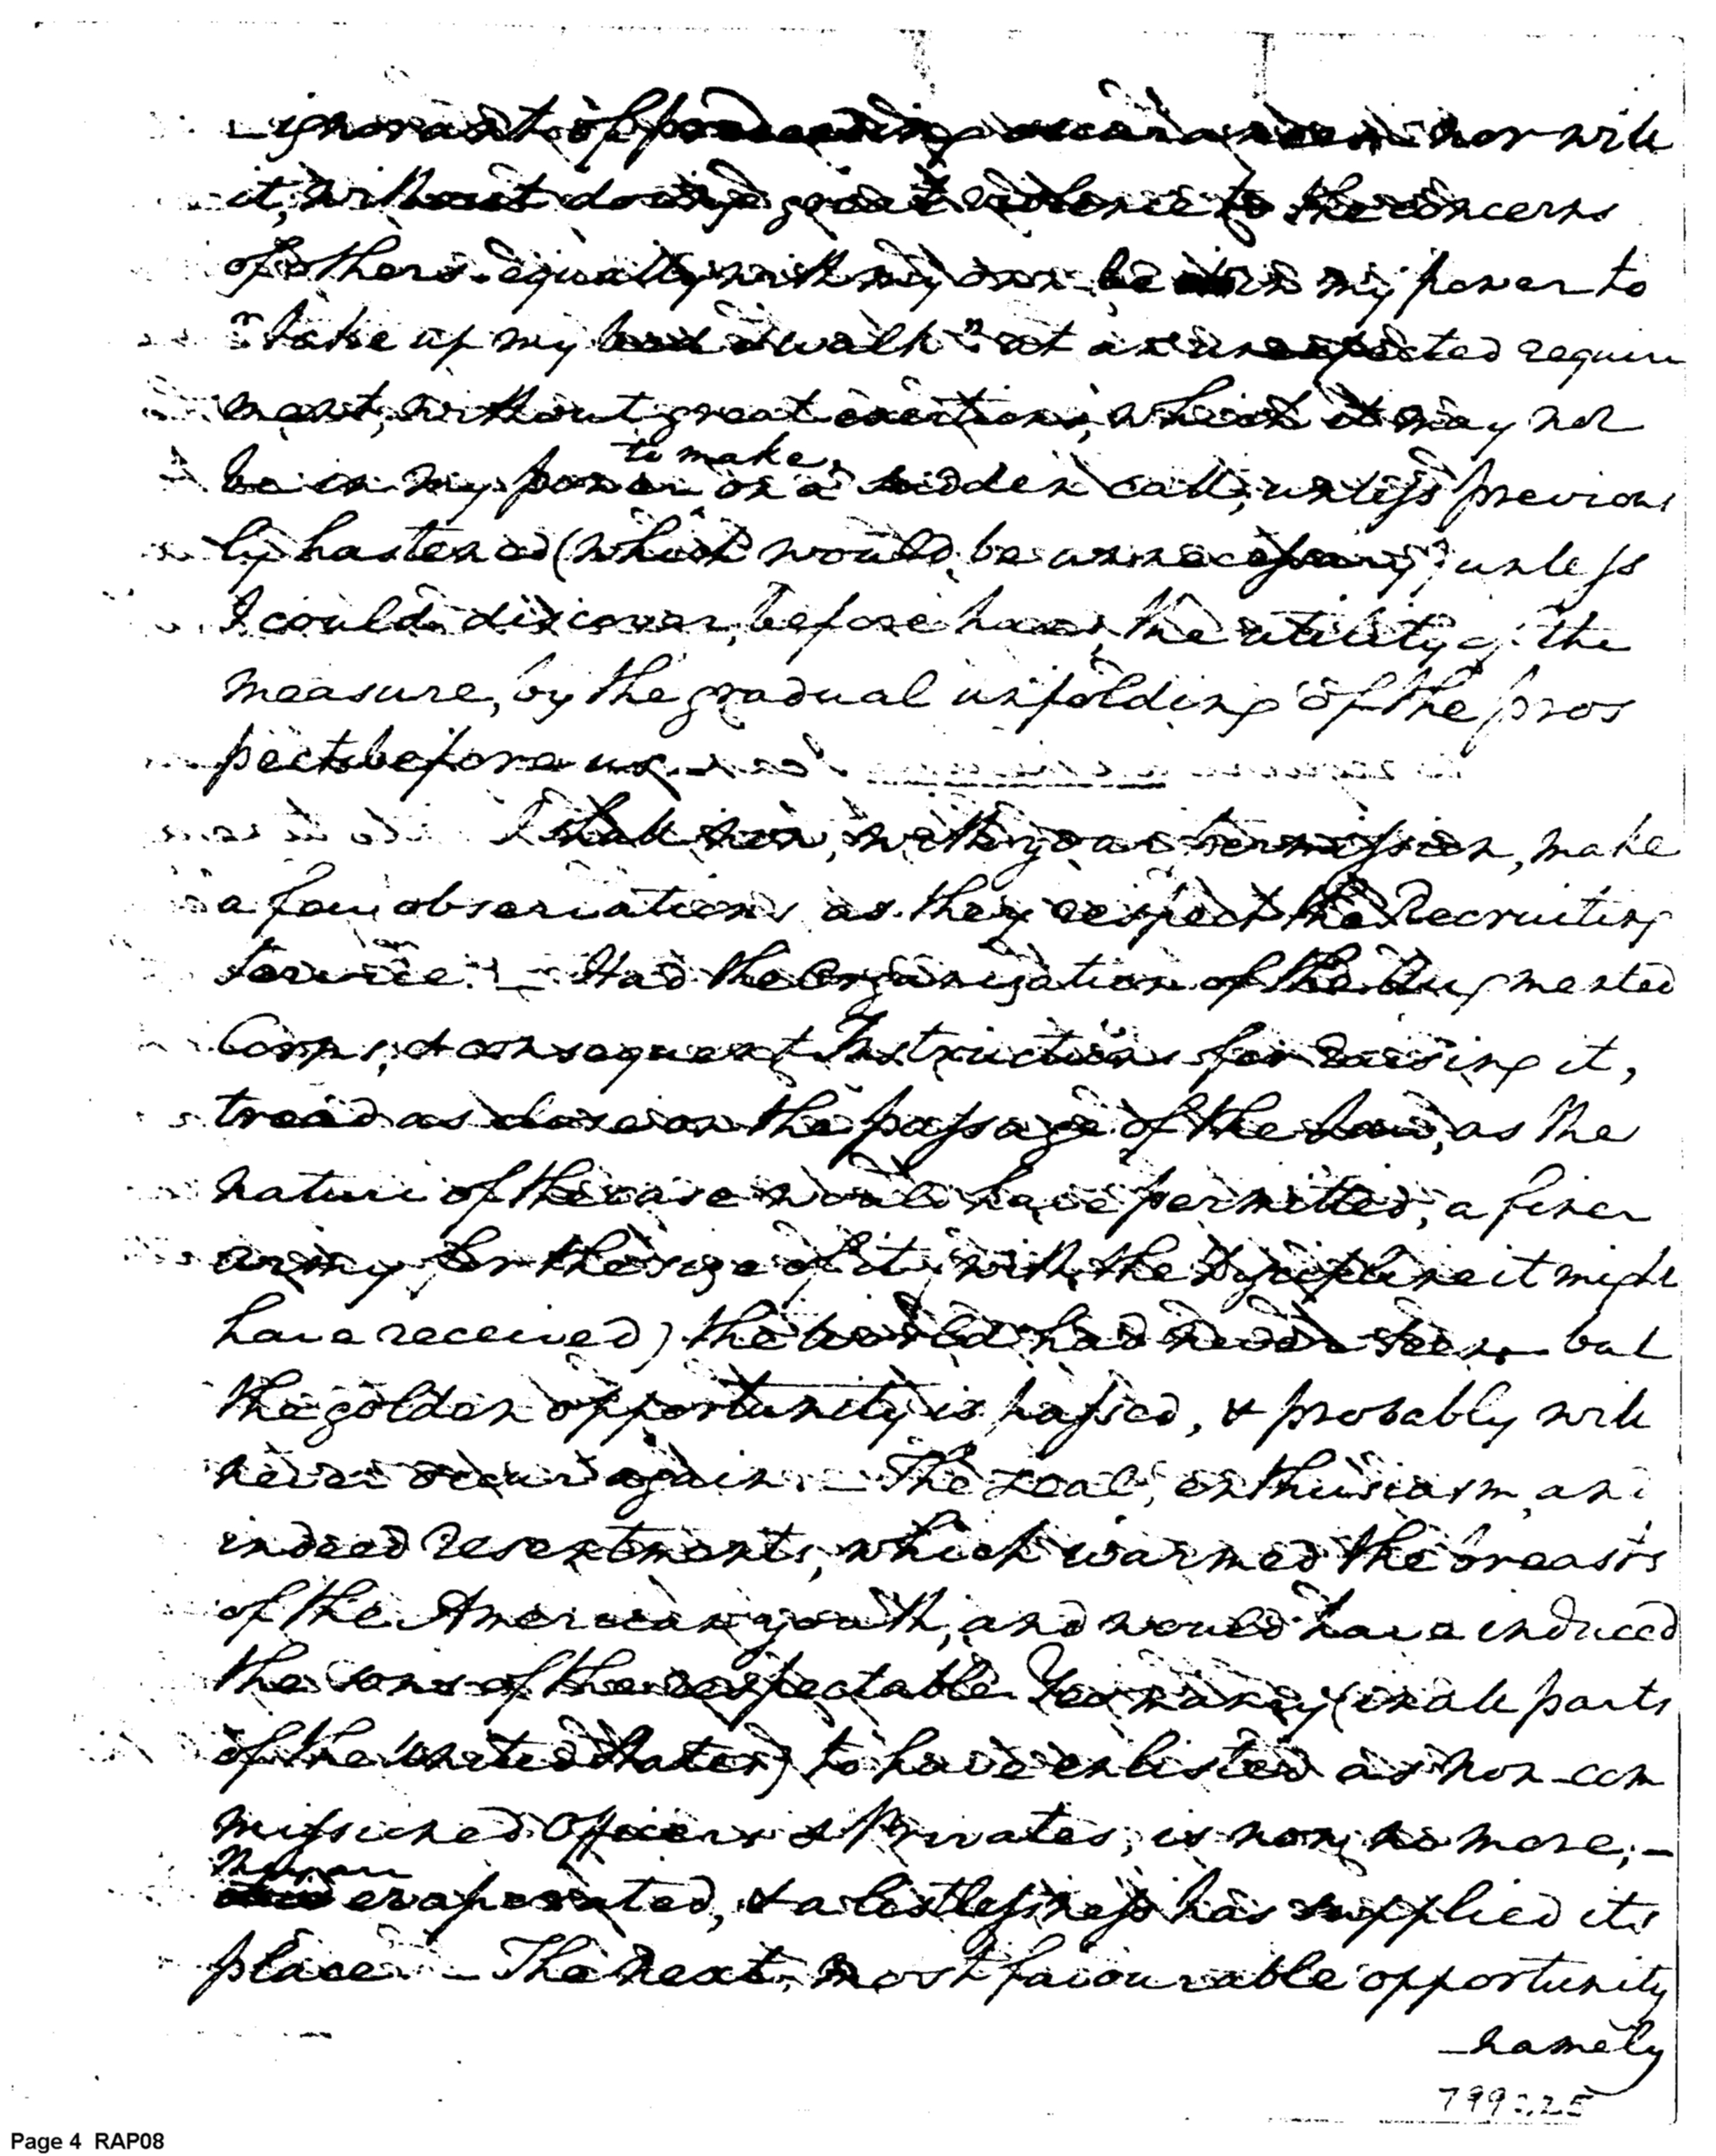 ignorant of preceeding occurances—nor will
it, without doing great violence to the concerns
of others equally with my own be in my power to
"take up my bed & walk" at an unexpected require
ment, without great exertions, which it may not
be in my power to make, on a sudden call, unless previous
ly hastened (which would be unnecessary) unless
I could discover, before hand, the utility of the
measure, by the gradual unfolding of the pros
pects before us.
I shall now, with your permission, make
a few observations as they respect the Recruiting
Service.—Had the Organization of the Augmented
Corps, & consequent Instructions for raising it,
tread as close on the passage of the Law, as the
nature of the case would have permitted, a finer
army for the size of it (with the Discipline it might
have received) the World had never seen: but
the golden opportunity is passed, & probably will
never occur again.—The zeal, enthusiasm, and
indeed resentments, which warmed the breasts
of the American youth, and would have induced
the sons of the respectable Yeomanry (in all parts
of the United States) to have enlisted as non-com
missioned Officers & Privates, is now no more;—
evaporated, & a listlessness has supplied its
place.—The next, most favourable opportunity
—namely
Page 4 RAP08